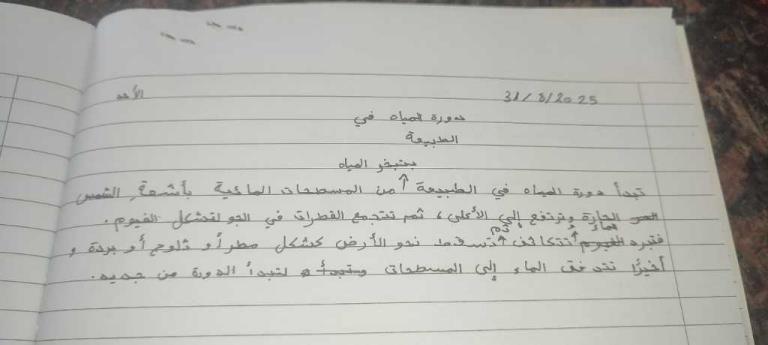 31/8/2025 الأحد
دورة المياه في
الطبيعة
بتبخر المياه
تبدأ دورة المياه في الطبيعة من المسطحات المائية بأشعة الشمس
الحارة وترتفع إلى الأعلى، ثم تتجمع القطرات في الجو لتشكل الغيوم.
ثم
فتبرد الغيوم وتتكاثف تتسقط نحو الأرض كشكل مطراً و ثلوج أو بردة و
أخيرًا تتدفق الماء إلى المسطحات لتبدأ الدورة من جديد.